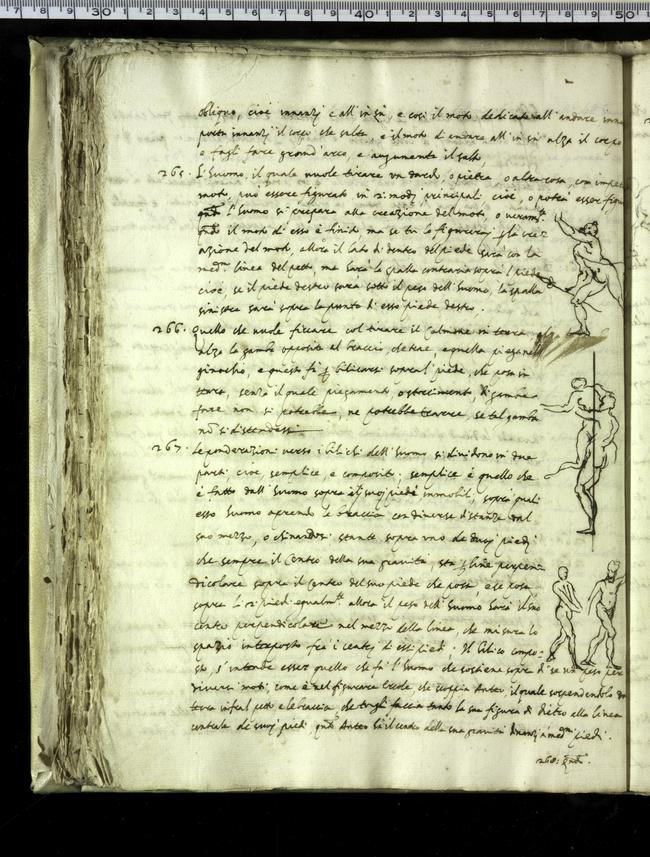 7 8 9 30 1 2 3 4 5 6 7 8 9 40 1 2 3 4 5 6 7 8 9 50
obliquo, cioè innanzi e all'in sù, e così il moto dedicato all'andare inna
porta innanzi il corpo che salta, e il moto di andare all'in sù alza il corpo
e fagli fare grand'arco, e augumenta il salto
265. L'huomo, il quale vuole tirare un dardo, o pietra, o altra cosa, con impet
moto, può essere figurato in 2 modi principali cioè, o potrà essere figur
qndo l'huomo si prepara alla creazione del moto, o veramte
qndo il moto di esso è finito ma se tu lo figurerai p la crea
azione del moto, allora il lato di dentro del piede sarà con la
medma linea del petto, ma sarà la spalla contraria sopra 'l piede
cioè, se il piede destro sarà sotto il peso dell'huomo, la spalla
sinistra sarà sopra la punta di esso piede destro.
266. Quello che vuole ficcare col tirare il calmone in terra,
alza la gamba opposita al braccio, che trae, e quella piega nel
ginochio, e questo fà p bilicarsi sopra 'l piede, che posa in
terra, senza il quale piegamento o storcimento di gamba
fare non si potrebbe, ne potrebbe traere, se tal gamba
nō si distendessi
267. Le ponderazioni verso i bilichi dell'huomo si dividono in due
parti cioè semplice, e composito; semplice è quello che
è fatto dall'huomo sopra li suoi piedi immobili, sopra quali
esso huomo aprendo le braccia con diverse distanze dal
suo mezzo, o chinandosi stante sopra uno de duoi piedi
che sempre il Centro della sua gravità, sta p linea perpen=
dicolare sopra il centro del suo piede che posa, e se posa
sopra li 2 piedi equalmte allora il peso dell'huomo sarà il suo
centro perpendicolare nel mezzo della linea, che misura lo
spazio interposto frà i centri d'essi piedi. Il bilico compo=
sto, s'intende esser quello che fà l'huomo che sostiene sopra di se un peso per
diversi moti, come è nel figurare Ercole, che scoppia Anteo, il quale sospendendolo da
terra infra 'l petto e le braccia, che tu gli faccia tanto la sua figura di dietro alla linea
centrale de suoi piedi, qnto Anteo hà il centro della sua gravità dinanzi a medmi piedi.
268: Qndo.